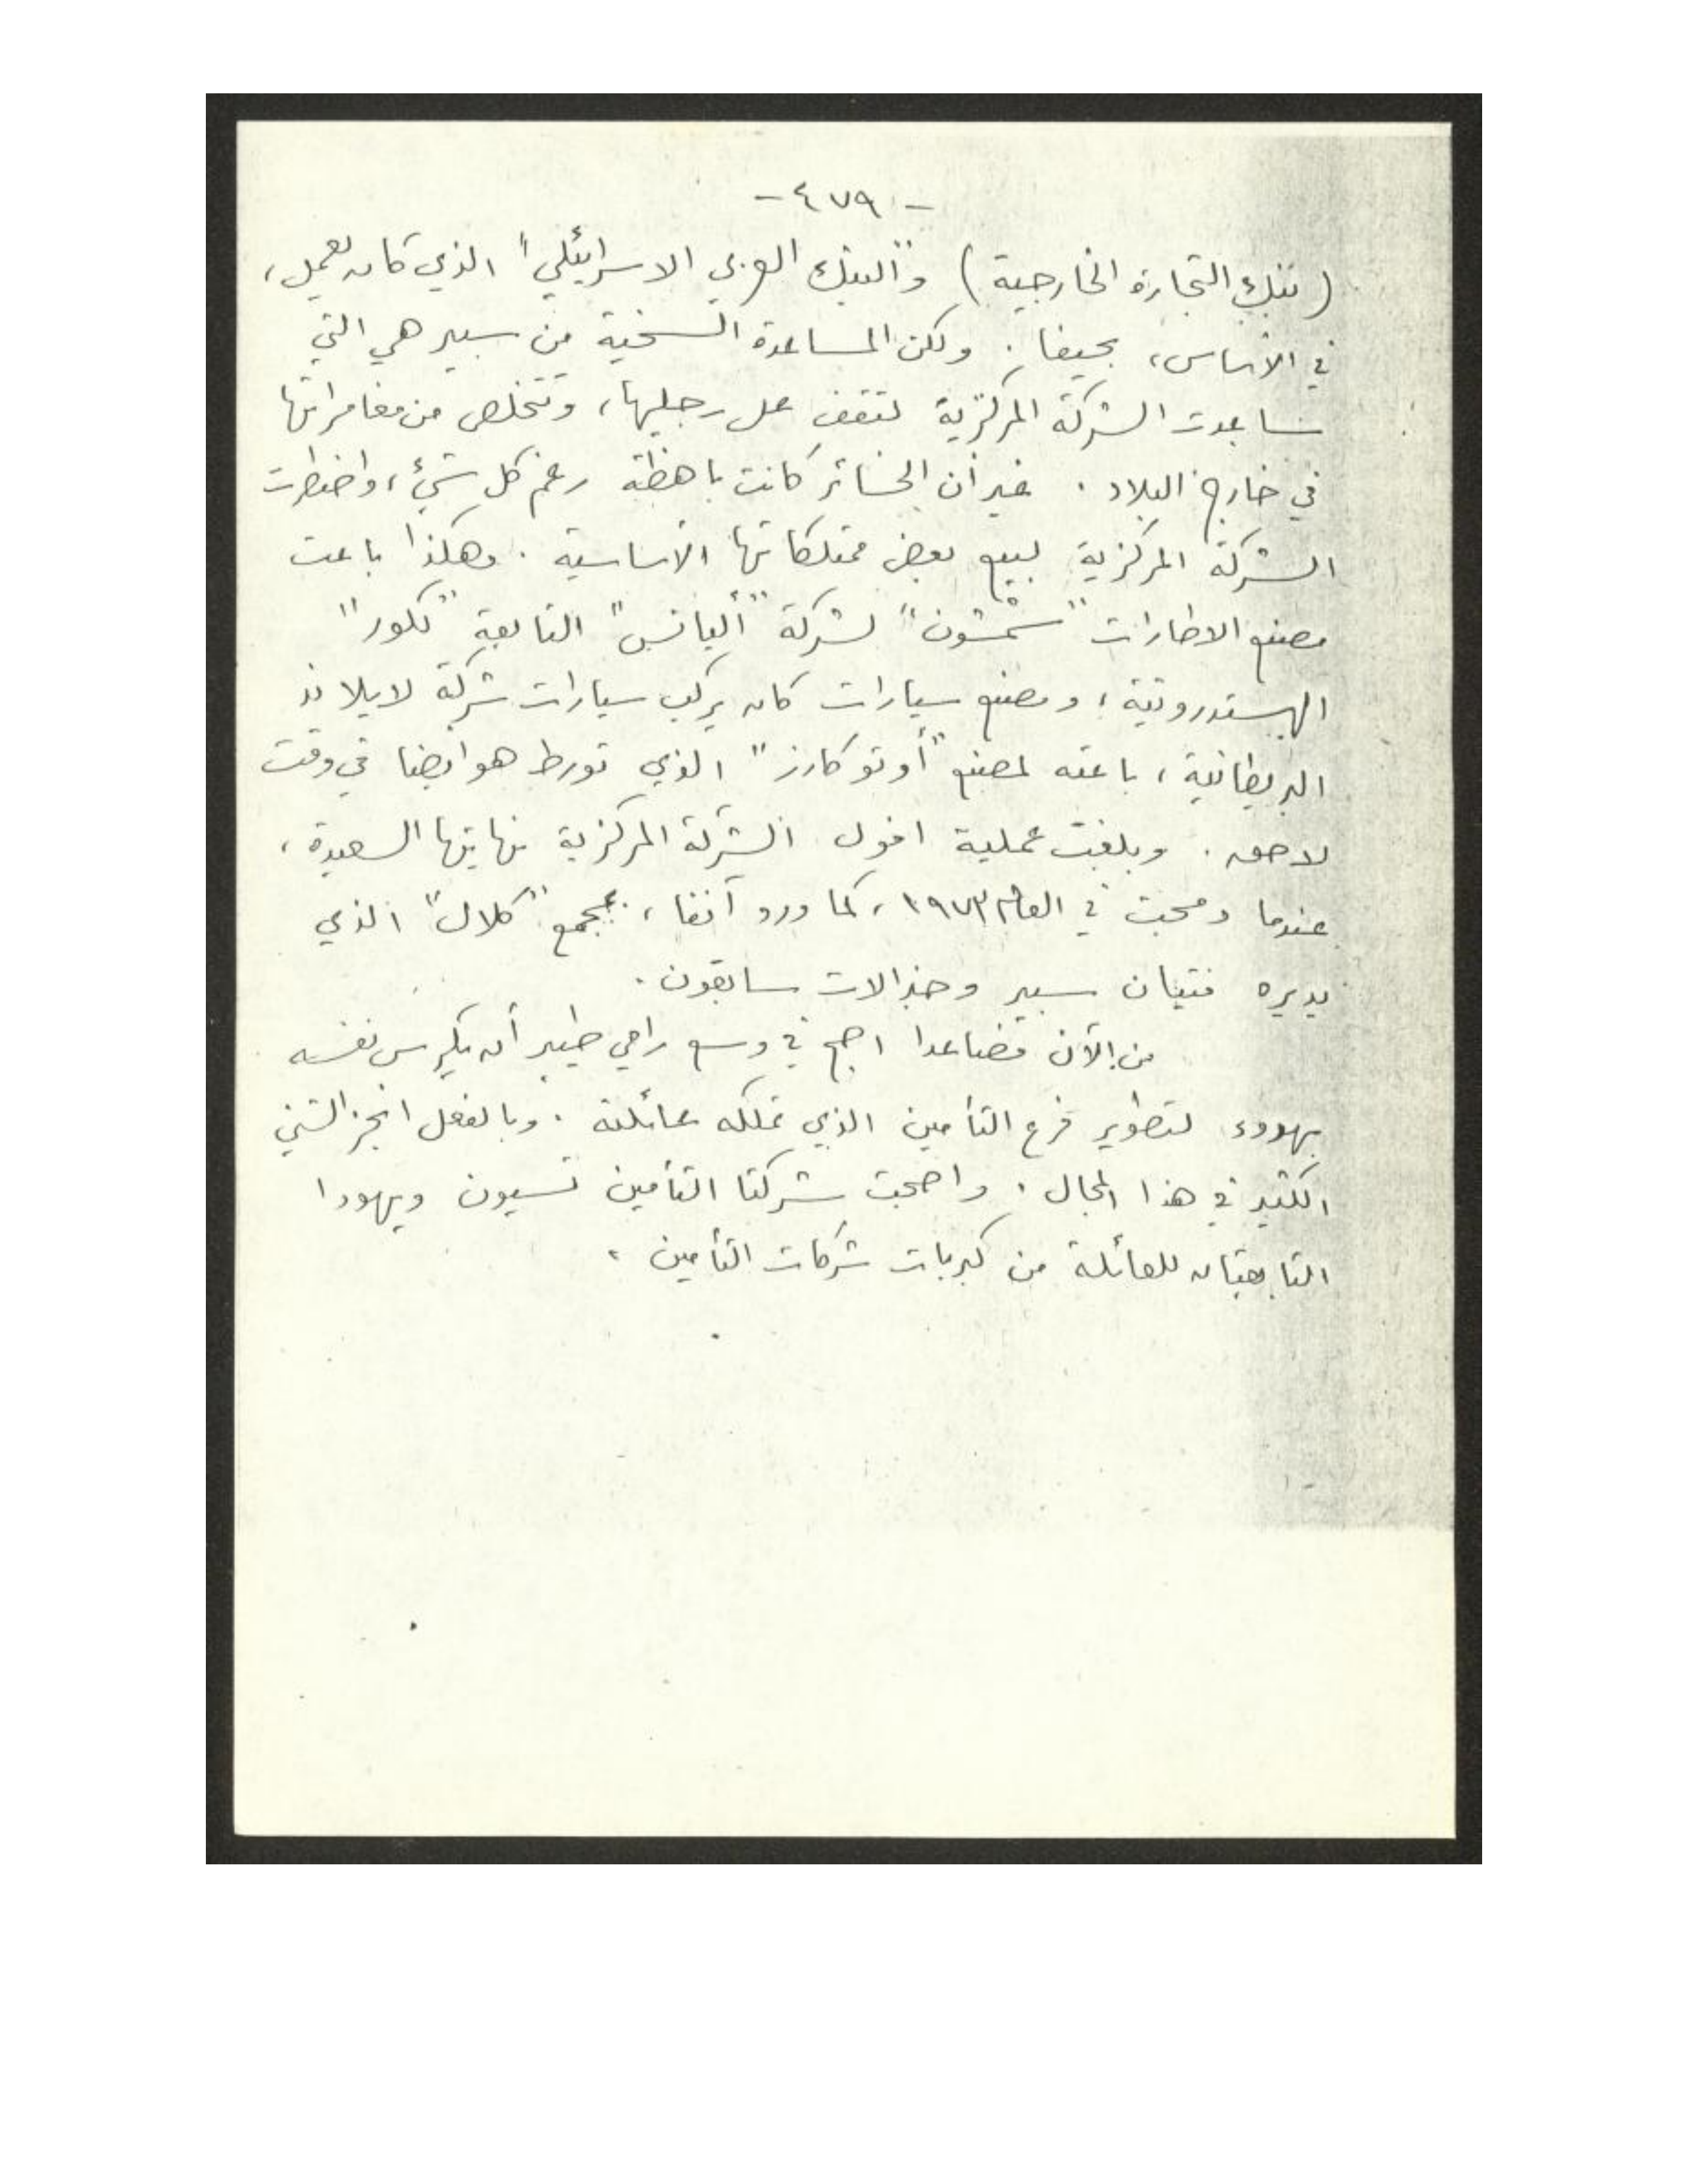 - ٤٧٩ -
(بنك التجارة الخارجية) و"البنك العربي الاسرائيلي" الذي كان يعمل،
في الأساس، بحيفا. ولكن المساعدة السخية من سبير هي التي
ساعدت الشركة المركزية لتقف على رجليها، وتتخلص من مغامراتها
في خارج البلاد. غير أن الخسائر كانت باهظة رغم كل شيء، واضطرت
الشركة المركزية لبيع بعض ممتلكاتها الأساسية. وهكذا باعت
مصنع الاطارات "شمشون" لشركة "أليانس" التابعة "لكور"
الهستدروتية، ومصنع سيارات كان يركب سيارات شركة لايلاند
البريطانية، باعته لمصنع "أوتوكارز" الذي تورط هو ايضا في وقت
لاحق. وبلغت عملية افول الشركة المركزية نهايتها السعيدة،
عندما دمجت في العام ١٩٧٣، كما ورد آنفا، بمجمع "كلال" الذي
يديره فتيان سبير وجنرالات سابقون.
من الآن فصاعدا اصبح في وسع رامي طيبر أن يكرس نفسه
بهدوء لتطوير فرع التأمين الذي تملكه عائلته. وبالفعل انجز الشيء
الكثير في هذا المجال. واصبحت شركتا التأمين تسيون ويهودا
التابعتان للعائلة من كبريات شركات التأمين.